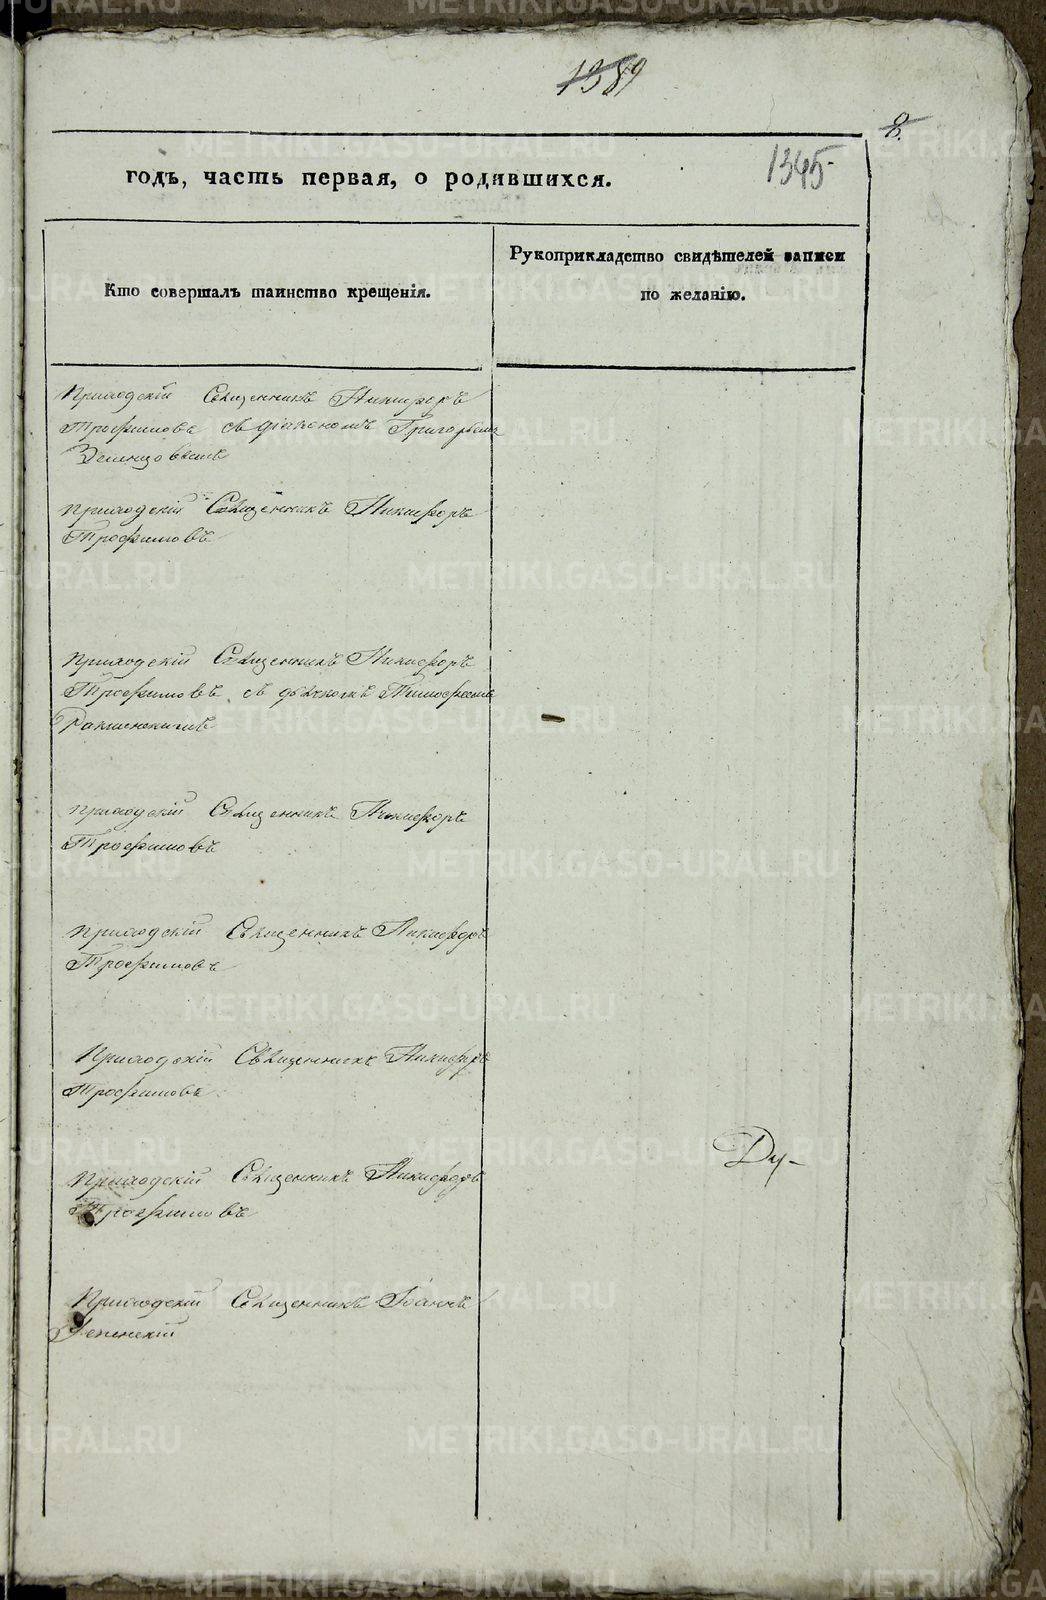 1389
8.
1345
годъ, часть первая, о родившихся.
Кто совершалъ таинство крещенія.
Рукоприкладство свидѣтелей записи
по желанію.
Приходскій Священникъ Никифоръ
Трофимовъ съ діакономъ Григорьемъ
Зеленцовымъ
приходскій Священникъ Никифоръ
Трофимовъ
приходскій Священникъ Никифоръ
Трофимовъ съ дьячкомъ Тимофеемъ
приходскій Священникъ Никифоръ
Трофимовъ
приходскій Священникъ Никифоръ
Трофимовъ
Приходскій Священникъ Никифоръ
Трофимовъ
Ду-
Приходскій Священникъ Никифоръ
Трофимовъ
Приходскій Священникъ Іоаннъ
METRIKI.GASO-URAL.RU